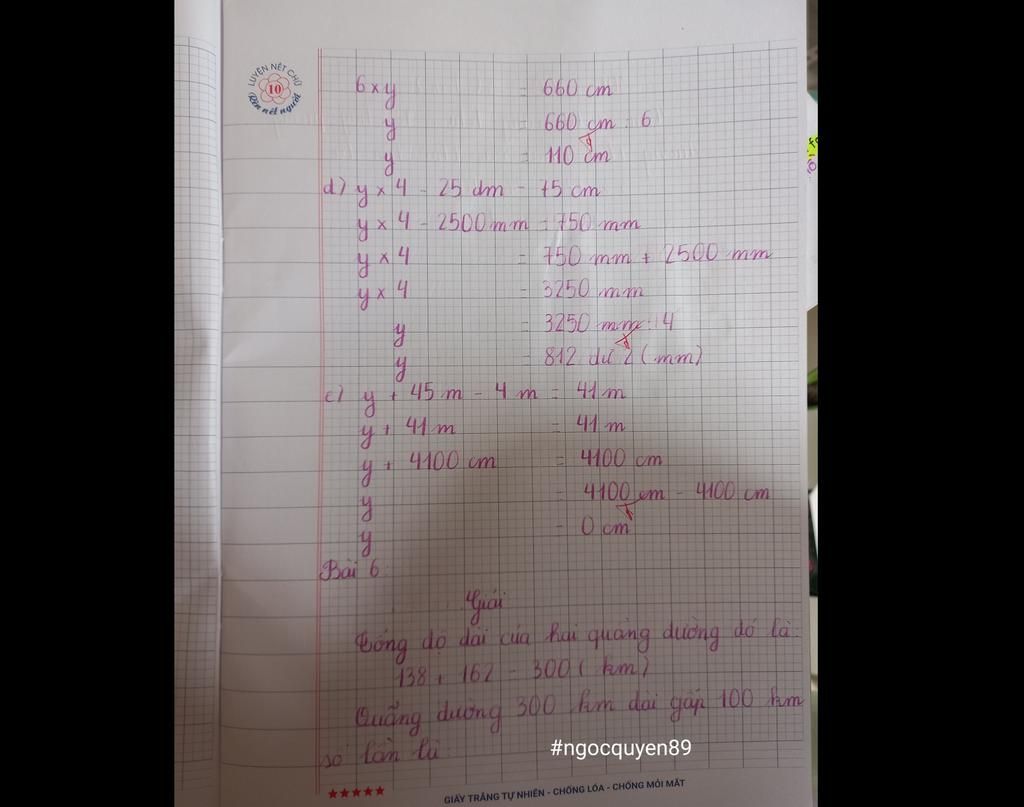 LUYỆN NÉT CHỮ
10
Rèn nết người
6 x y = 660 cm
y = 660 cm : 6
y = 110 cm
d) y x 4 - 25 dm = 75 cm
y x 4 - 2500 mm = 750 mm
y x 4 = 750 mm + 2500 mm
y x 4 = 3250 mm
y = 3250 mm : 4
y = 812 dư 2 (mm)
e) y + 45 m - 4 m = 41 m
y + 41 m = 41 m
y + 4100 cm = 4100 cm
y = 4100 cm - 4100 cm
y = 0 cm
Bài 6
Giải
Tổng độ dài của hai quãng đường đó là:
138 + 162 = 300 (km)
Quãng đường 300 km dài gấp 100 km
số lần là
#ngocquyen89
GIẤY TRẮNG TỰ NHIÊN - CHỐNG LÓA - CHỐNG MỎI MẮT